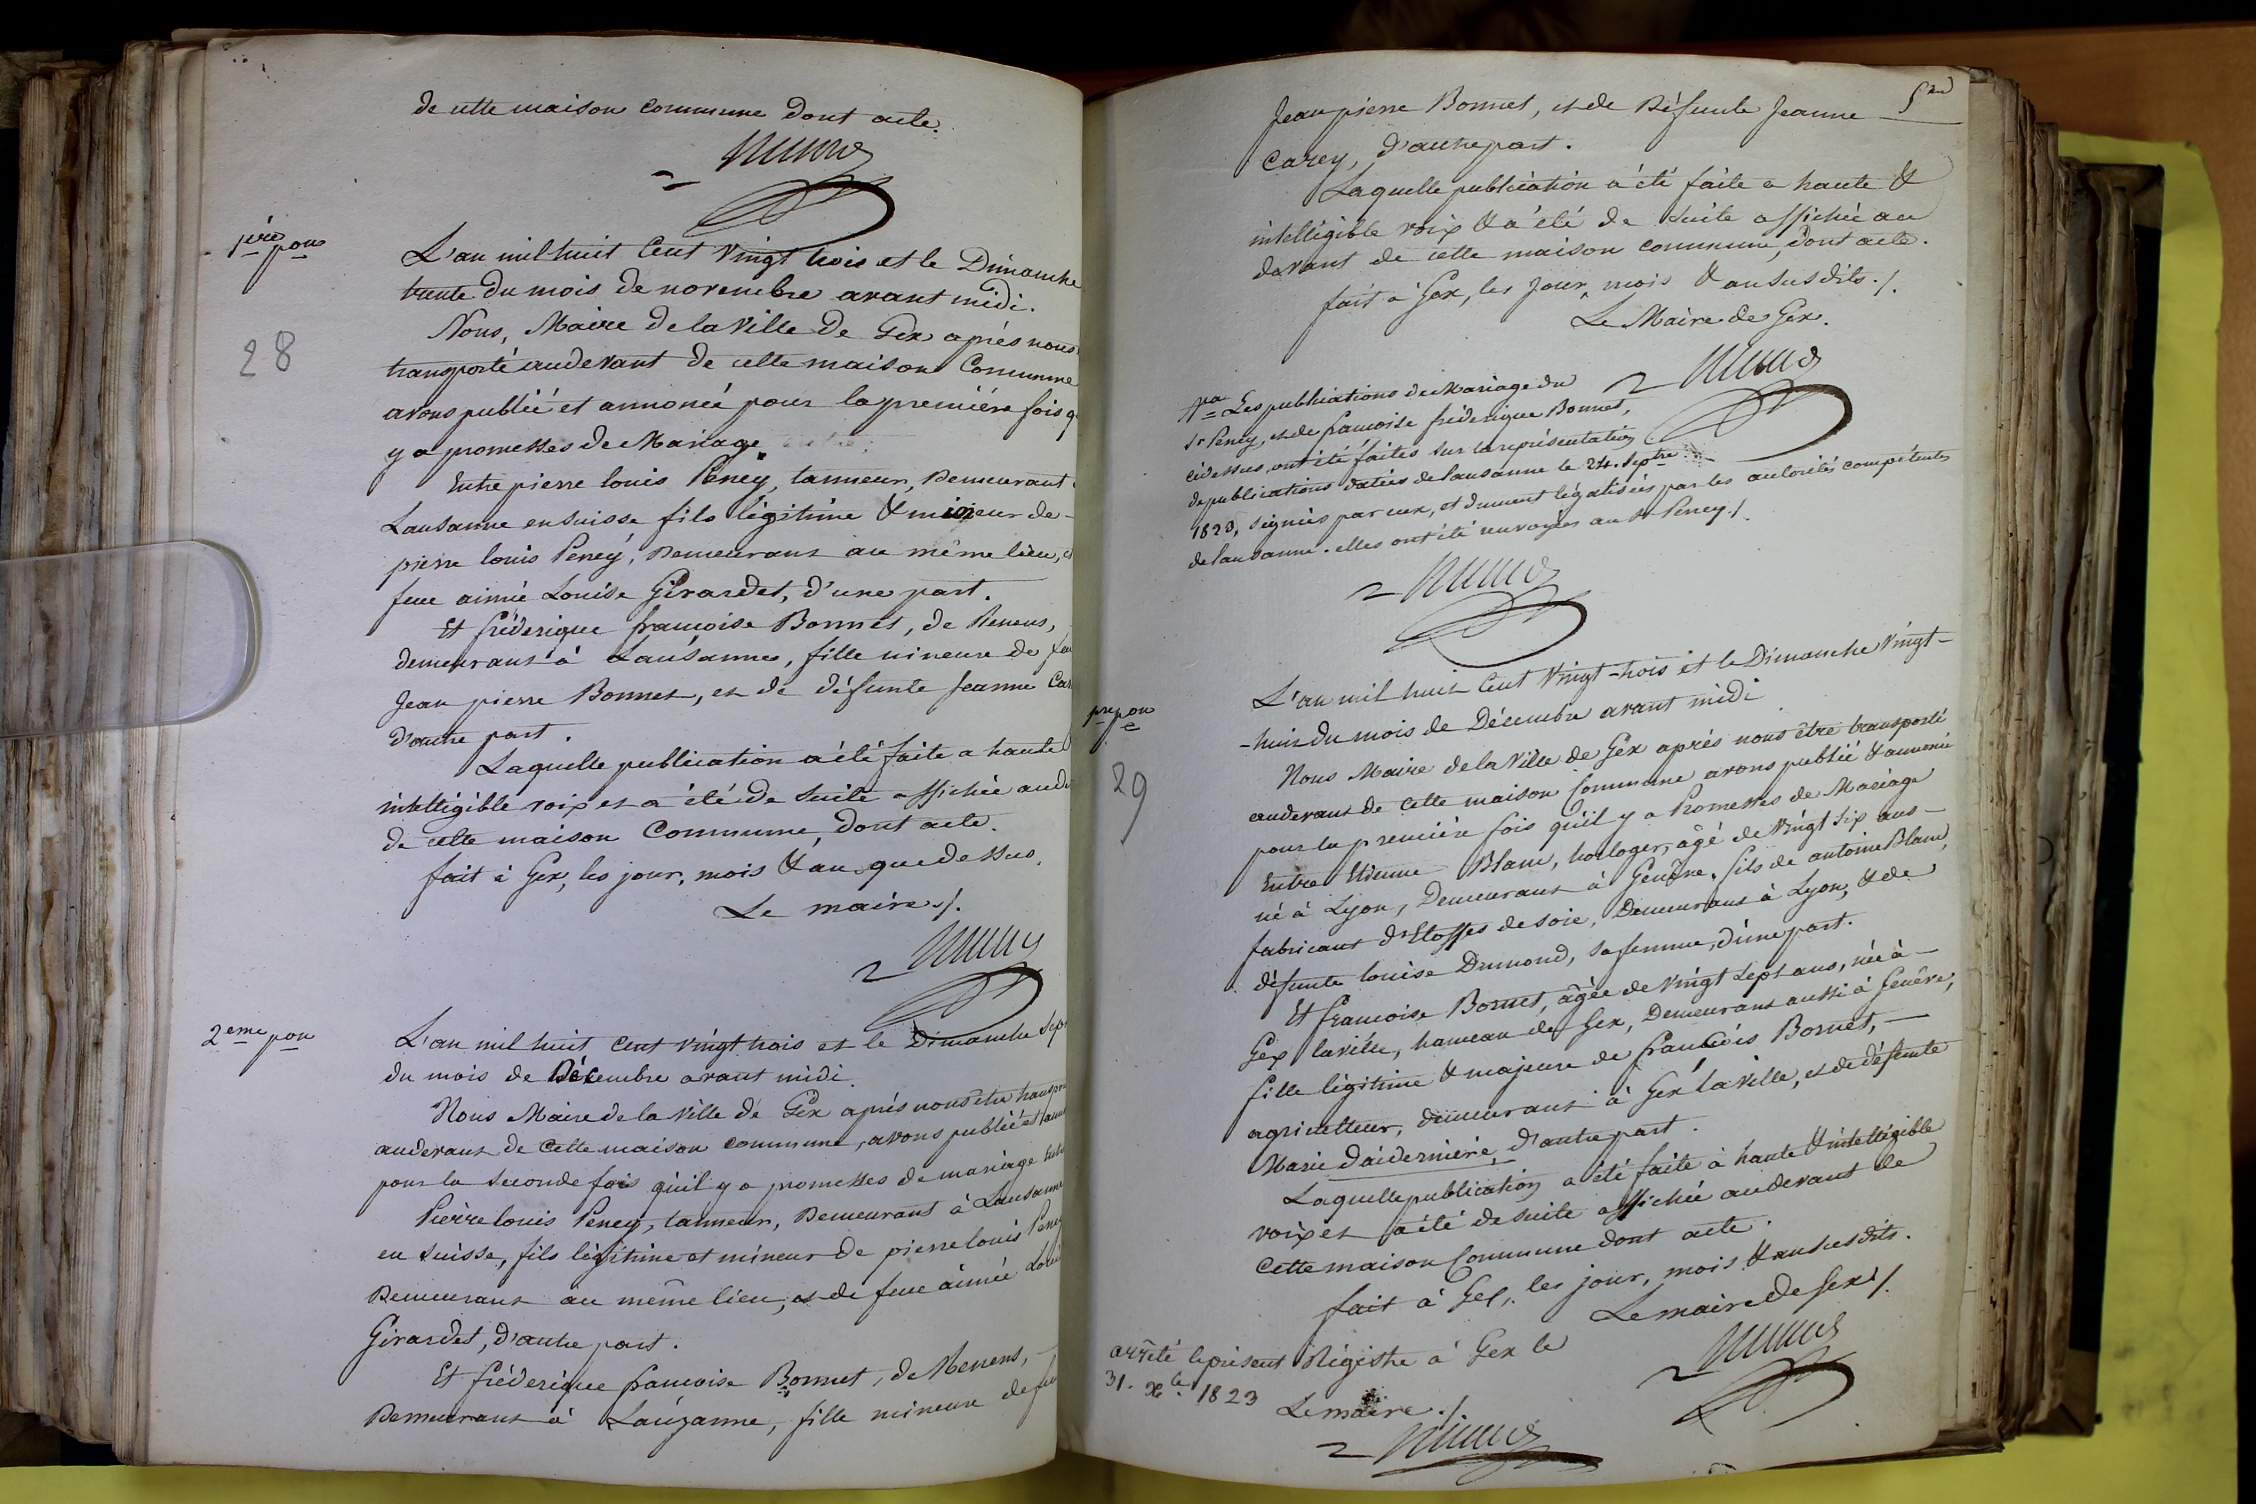 de cette maison commune dont acte.
1ère pon
28
L'an mil huit Cent Vingt trois et le Dimanche
trente du mois de novembre avant midi.
Nous, Maire de la Ville de Gex après nous
transporté au devant de cette maison Commune
avons publié et annoncé pour la première fois q
y a promesses de Mariage
Entre pierre louis Peney, tanneur, Demeurant
Lausanne en suisse fils légitime & mineur de
pierre louis Peney, Demeurant au même lieu,
feue aimée Louise Girardet, d'une part.
Et fréderique françoise Bonnet, de Renens,
demeurant à Lausanne, fille mineure de feu
Jean pierre Bonnet, et de défunte Jeanne Car
d'autre part.
Laquelle publication a été faite a haute
intelligible voix et a été de suite affichée au de
de cette maison Commune, dont acte.
fait à Gex, les jour, mois & an que dessus.
Le maire ./.
2eme pon
L'an mil huit cent vingt trois et le Dimanche sep
du mois de Décembre avant midi.
Nous Maire de la ville de Gex après nous être transpor
au devant de cette maison commune, avons publié et anno
pour la seconde fois qu'il y a promesses de mariage entre
Pierre louis Peney, tanneur, Demeurant à Lausanne
en suisse, fils légitime et mineur de pierre louis Peney
Demeurant au même lieu, et de feue aimée Loui
Girardet, d'autre part.
Et fréderique françoise Bonnet, de Renens,
Demeurant à Lauzanne, fille mineure de feu
Jean pierre Bonnet, et de Défunte Jeanne
Carey, d'autre part.
Laquelle publication a été faite a haute &
intelligible voix & a été de suite affichée au
davant de cette maison commune, dont acte.
fait à Gex, les jour, mois & an susdits ./.
Le Maire de Gex.
Les publications de Mariage du
Sr Peney, et de francoise fréderique Bonnet,
cidessus, ont été faites sur la représentation
de publications datées de lausanne le 24. Septre
1823, signées par eux, et dument légalisées par les autorités compétentes
de lausanne. elles ont été renvoyées au Sr Peney ./.
pre pon
29
L'an mil huit Cent Vingt-trois et le Dimanche Vingt-
-huit du mois de Décembre avant midi
Nous Maire de la Ville de Gex après nous être transporté
au devant de cette maison Commune avons publié & annoncé
pour la première fois qu'il y a Promesses de Mariage
Entre Etienne Blanc, horloger, âgé de Vingt six ans
né à Lyon, Demeurant à Genève, fils de antoine Blanc,
fabricant d'Etoffes de soie, Demeurant à Lyon, & de
défunte louise Dumond, sa femme, d'une part.
Et francoise Bornet, âgée de Vingt sept ans, née à
Gex laville, hameau de Gex, Demeurant aussi à Genêve,
fille légitime & majeure de francois Bornet,
agriculteur, demeurant à Gex laville, et de défunte
Marie Daidernière, d'autre part.
Laquelle publication a été faite à haute & intelligible
voix et a été de suite affichée au devant de
cette maison Commune dont acte.
fait à Gex, les jour, mois & an susdits.
Le maire de Gex ./.
arrêté le présent Régistre à Gex le
31. Xbre 1823
Le maire ./.